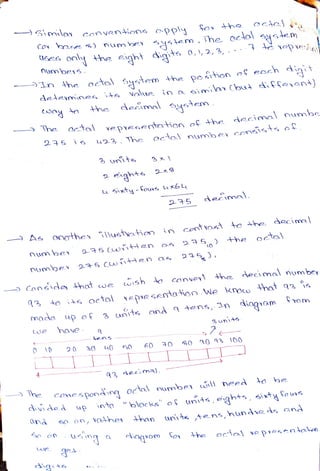 → Similar conventions apply for the octal
(or base 8) number system. The octal system
uses only the eight digits 0,1,2,3,... 7 to represent
numbers.
→ In the octal system the position of each digit
determines its value in a similar (but different)
way to the decimal system.
→ The octal representation of the decimal number
275 is 423. The octal number consists of
3 units 3×1
2 eights 2×8
4 sixty-fours 4×64
275 decimal.
→ As another illustration in contrast to the decimal
number 275 (written as 275₁₀) the octal
number 275 (written as 275₈).
→ Consider that we wish to convert the decimal number
93 to its octal representation. We know that 93 is
made up of 3 units and 9 tens. In diagram from
we have. 9
tens
3 units
0 10 20 30 40 50 60 70 80 90 93 100
93 decimal.
→ The corresponding octal number will need to be
divided up into "blocks" of units, eights, sixty fours
and so on, rather than units, tens, hundreds and
so on using a diagram for the octal representation
we get.
digits